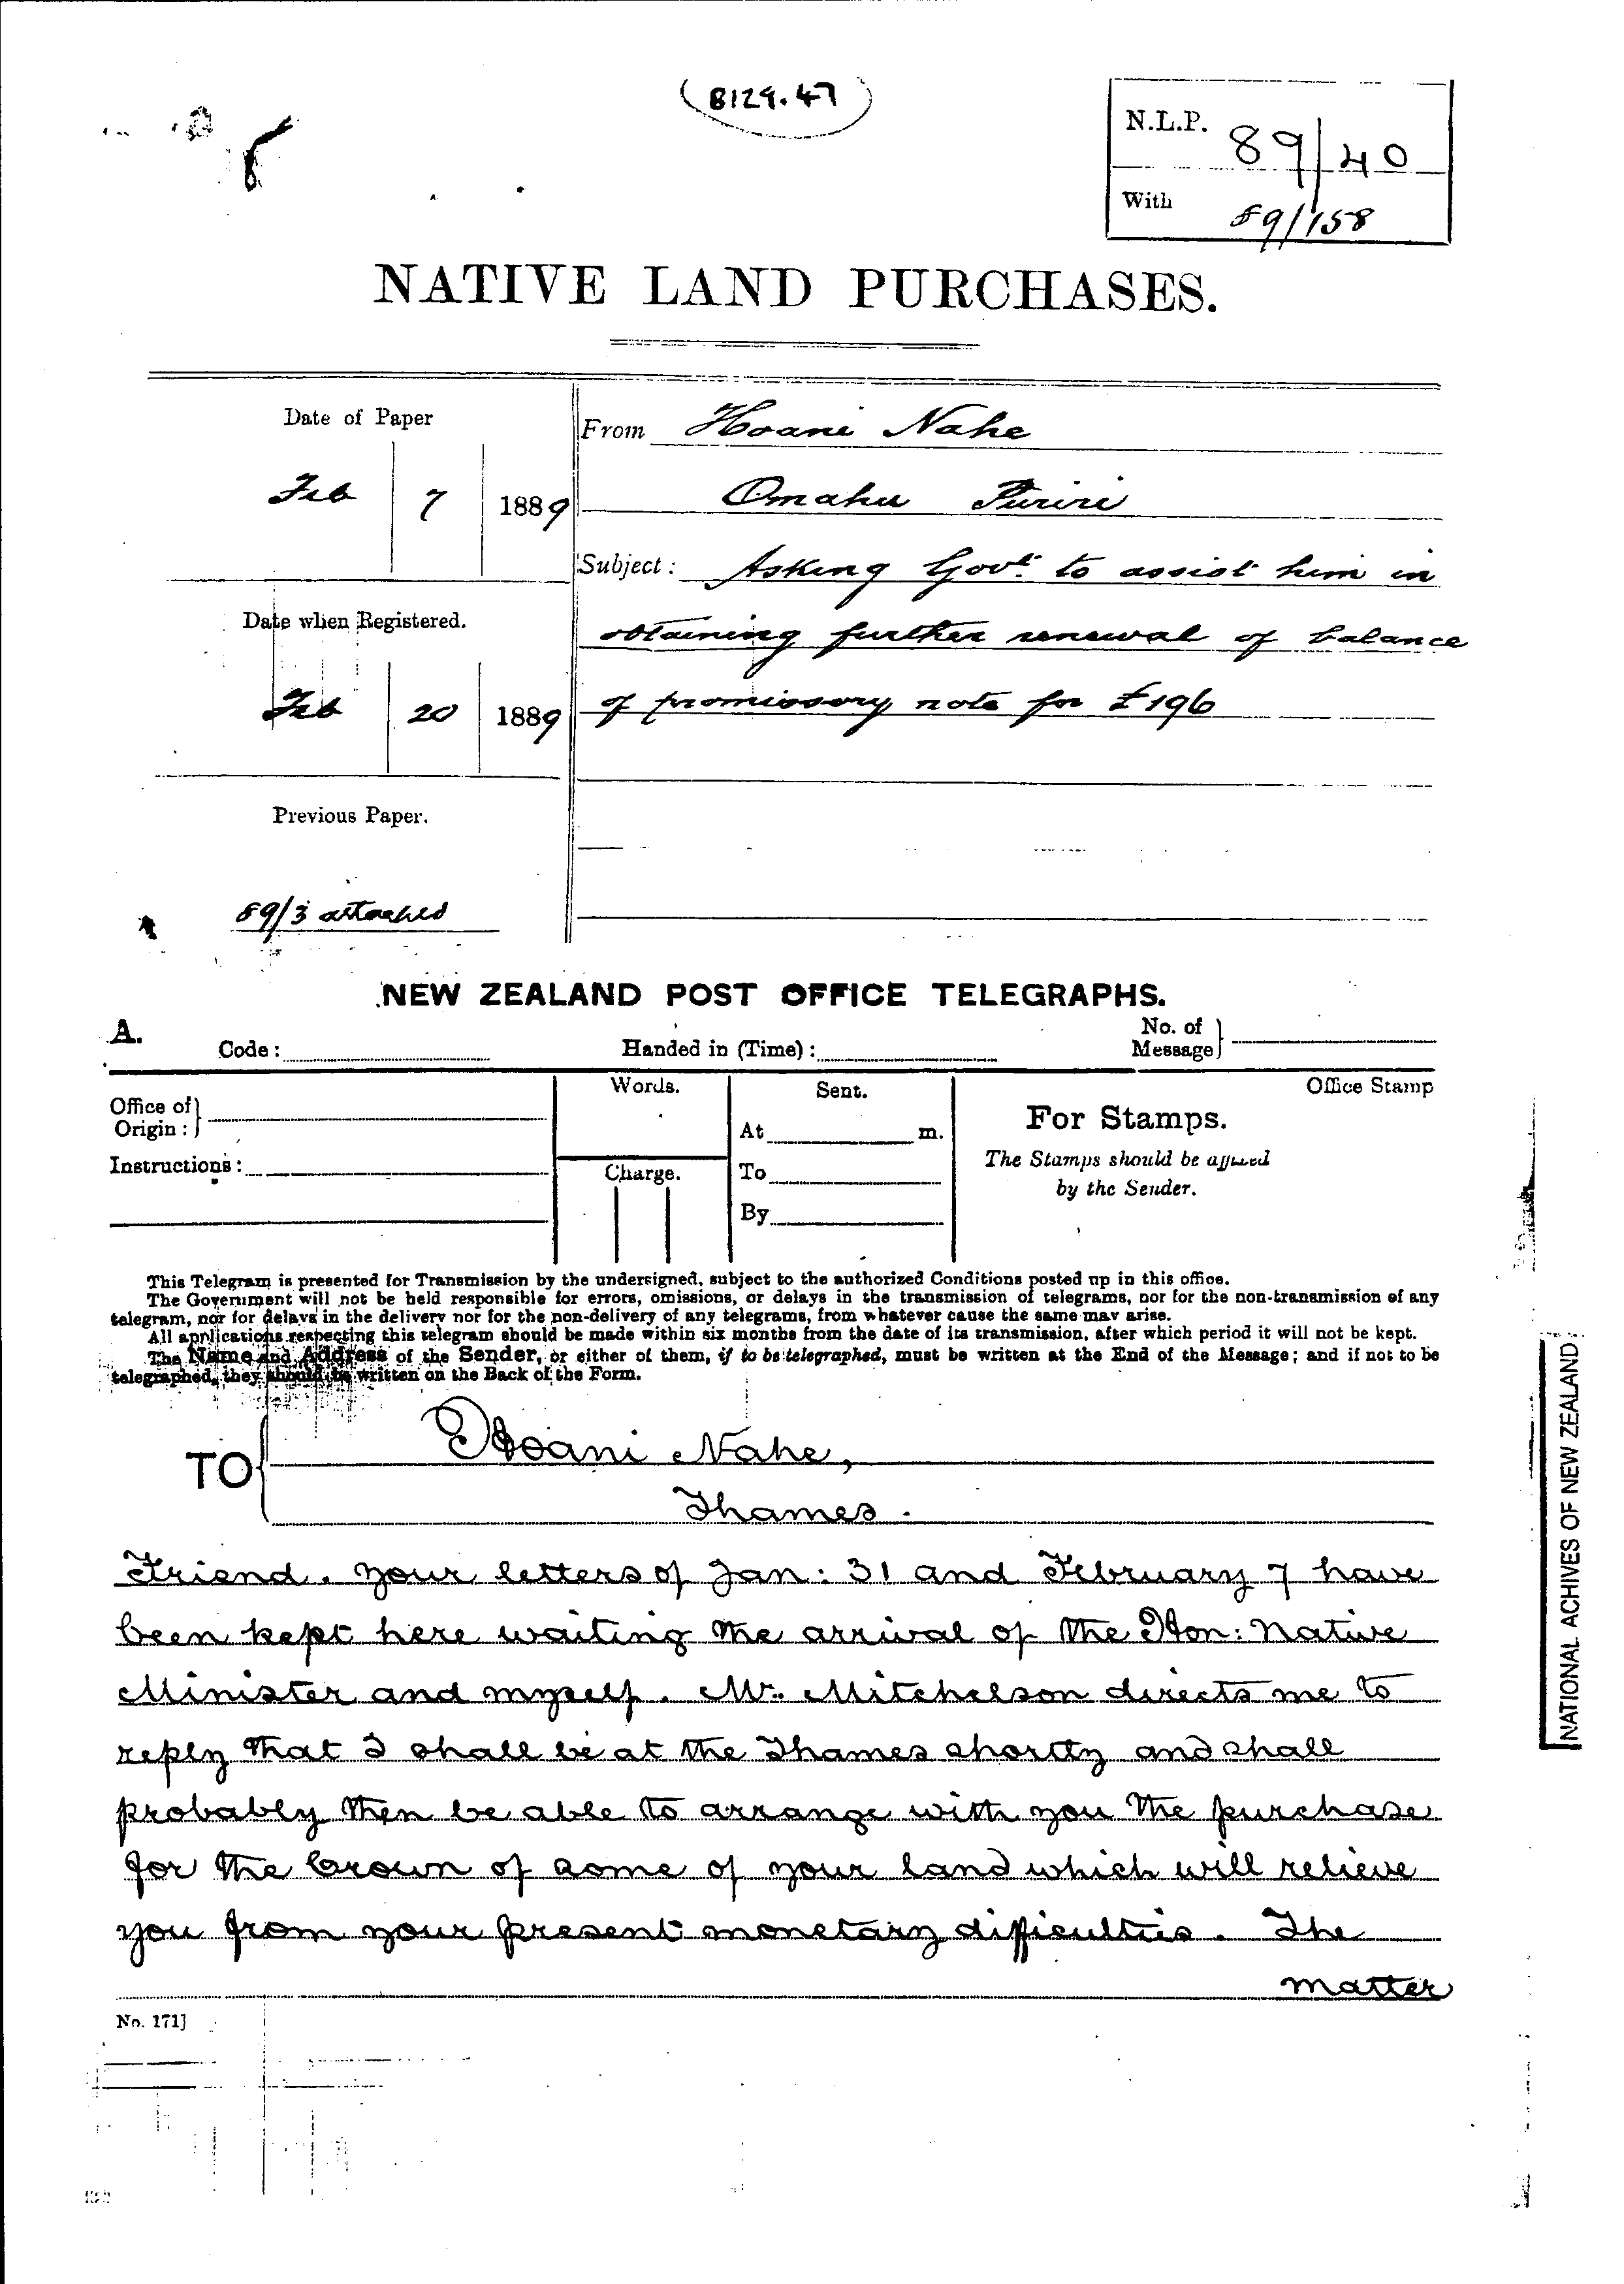 B129.47
N.L.P. 89/40
With 89/158
NATIVE LAND PURCHASES.
Date of Paper
Feb 7 1889
From Hoani Nahe
Omahu Puriri
Subject: Asking Govt. to assist him in
obtaining further renewal of balance
of promissory note for £196
Date when Registered.
Feb 20 1889
Previous Paper.
89/3 attached
NEW ZEALAND POST OFFICE TELEGRAPHS.
A.
Code:
Handed in (Time):
No. of Message
Office of Origin:
Instructions:
Words.
Charge.
Sent.
At m.
To
By
For Stamps.
The Stamps should be affixed
by the Sender.
Office Stamp
This Telegram is presented for Transmission by the undersigned, subject to the authorized Conditions posted up in this office.
The Government will not be held responsible for errors, omissions, or delays in the transmission of telegrams, nor for the non-transmission of any
telegram, nor for delays in the delivery nor for the non-delivery of any telegrams, from whatever cause the same may arise.
All applications respecting this telegram should be made within six months from the date of its transmission, after which period it will not be kept.
The Name and Address of the Sender, or either of them, if to be telegraphed, must be written at the End of the Message; and if not to be
telegraphed, they should be written on the Back of the Form.
TO Hoani Nahe,
Thames.
Friend. Your letters of Jan: 31 and February 7 have
been kept here waiting the arrival of the Hon: Native
Minister and myself. Mr. Mitchelson directs me to
reply that I shall be at the Thames shortly and shall
probably then be able to arrange with you the purchase
for the Crown of some of your land which will relieve
you from your present monetary difficulties. The
matter
No. 171]
NATIONAL ACHIVES OF NEW ZEALAND